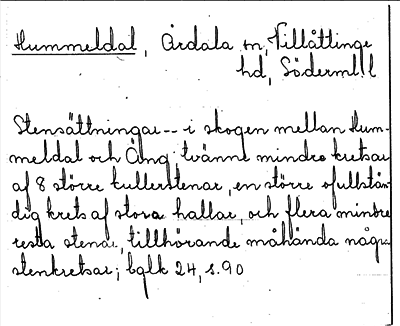 Hummeldal, Årdala sn, Villåttinge
hd, Söderml. l
Stensättningar -- i skogen mellan Hum-
meldal och Äng tvänne mindre kretsar
af 8 större kullerstenar, en större ofullstän-
dig krets af stora hallar, och flera mindre
resta stenar, tillhörande måhända några
stenkretsar; bglk 24, s. 90